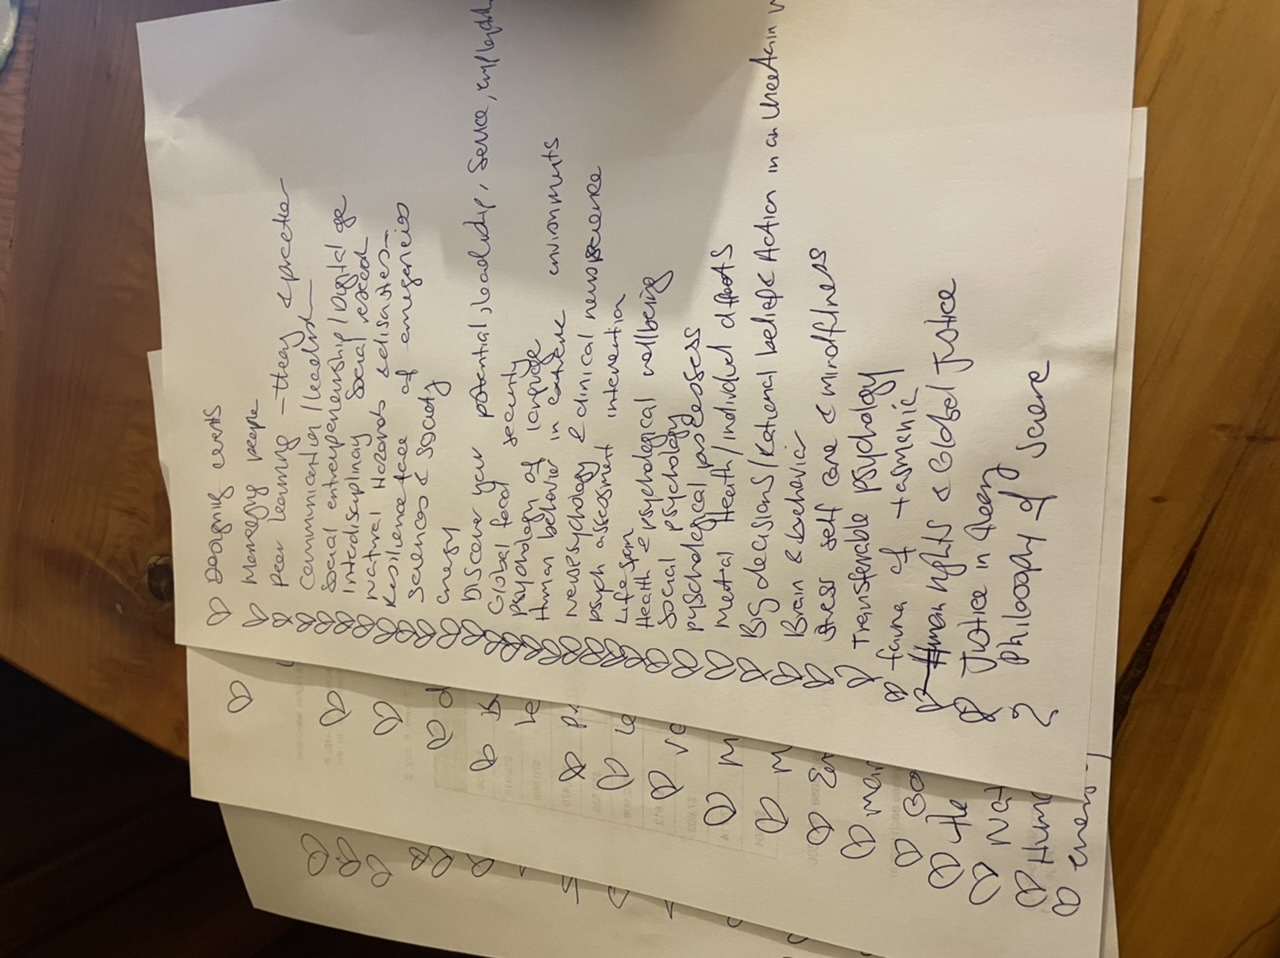 Designing events
Managing people
peer learning - theory & practice
Communication / leadership
Social entrepreneurship / Digital age
Interdisciplinary Social
Natural Hazards & disasters
Resilience of emergencies
Sciences & Society
energy
Discover your potential, leadership, Service,
Global food security
psychology of language
Human behavior in extreme environments
Neuropsychology & clinical neuroscience
psych assessment intervention
Lifespan
Health & psychological wellbeing
Social psychology
pyschological processes
Mental Health / individual
Big decisions / Rational belief & Action in an uncertain w
Brain & behavior
Stress self care & mindfulness
Transferable psychology
fauna of tasmania
Human rights & Global Justice
Justice in
Philosophy of Science
mar
the
Nat
Huma
energy